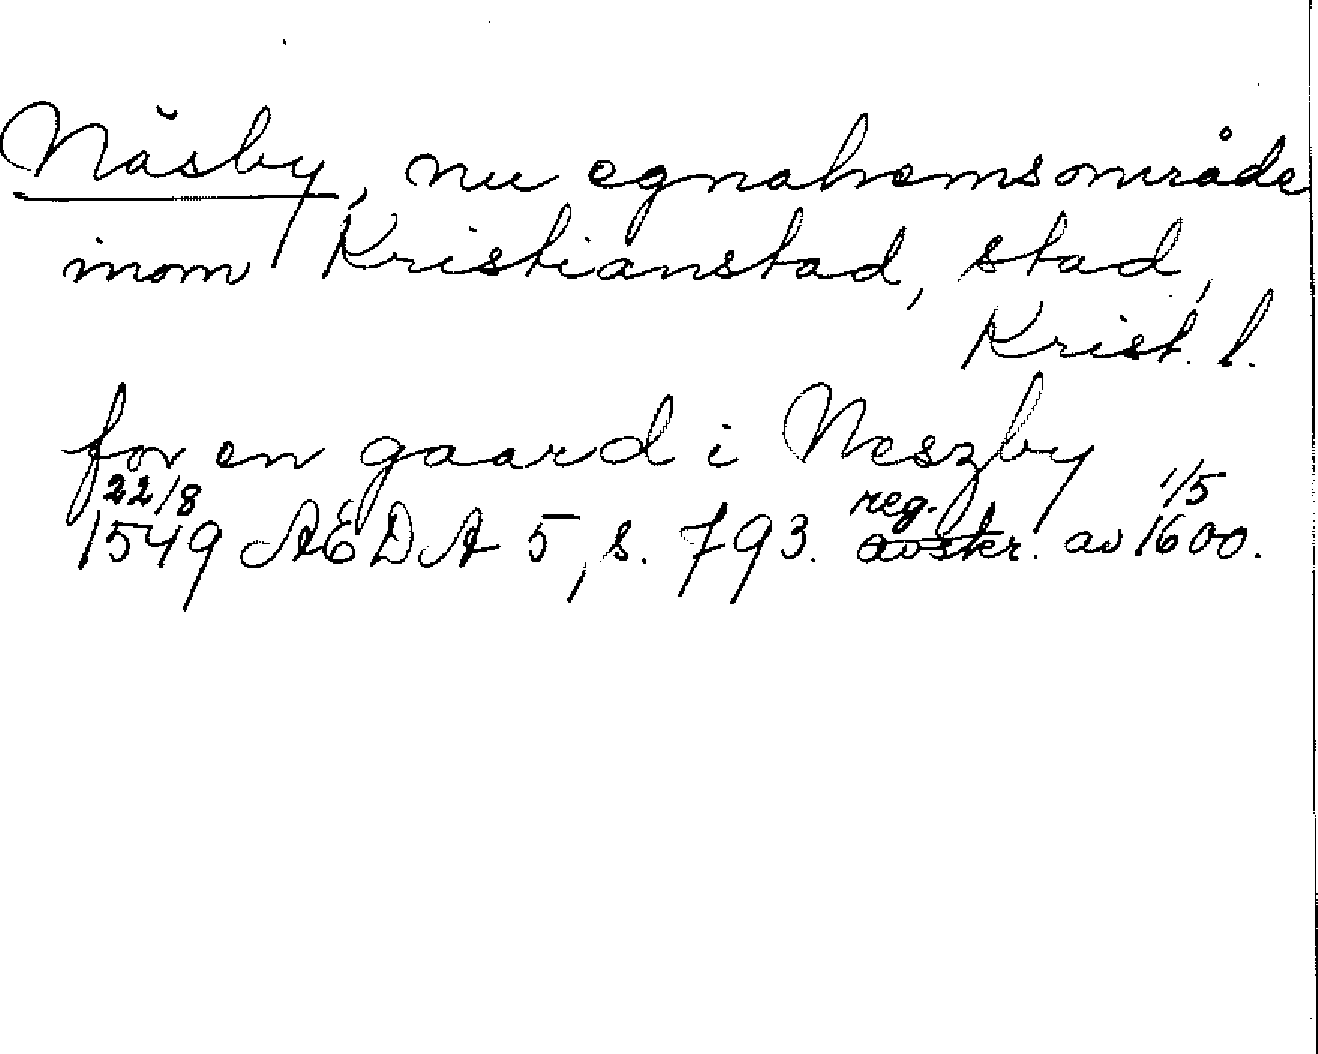 Näsby, nu egnahemsområde
inom Kristianstad, stad,
Krist. l.
for en gaard i Neszby
22/8 reg. 1/5
1549 AEDA 5, s. 793. avskr. av 1600.